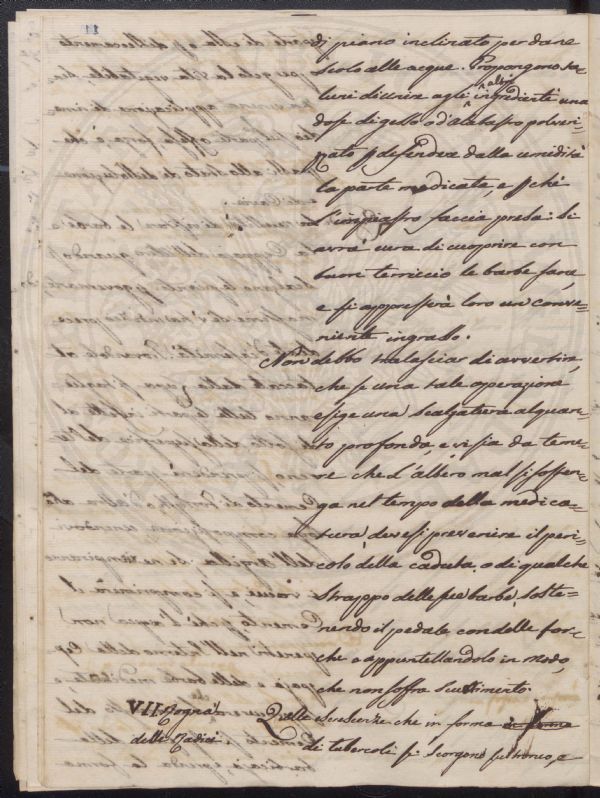 11
di piano inclinato per dare
scolo alle acque. Propongono ta-
luni di unire agli altri ingredienti una
dose di gesso o d'alabastro polveri-
zzato p difendere dalla umidità
la parte medicata, e pchè
l'impiastro faccia presa. Si
avrà cura di cuoprire con
buon terriccio le barbe sane,
e si appresserà loro un conve-
niente ingrasso.
Non debbo tralasciar di avvertire,
che se una tale operazione
esige una scalzatura alquan-
to profonda, e vi sia da teme-
re che l'albero mal si soffer-
ga nel tempo della medica-
tura, devesi prevenire il peri-
colo della caduta, o di qualche
strappo delle sue barbe, soste-
nendo il pedale con delle for-
che o appuntellandolo in modo,
che non soffra scuotimento.
VII Rogna
delle Radici
Quelle escrescenze che in forma in forma
di tubercoli si scorgono sul tronco, e